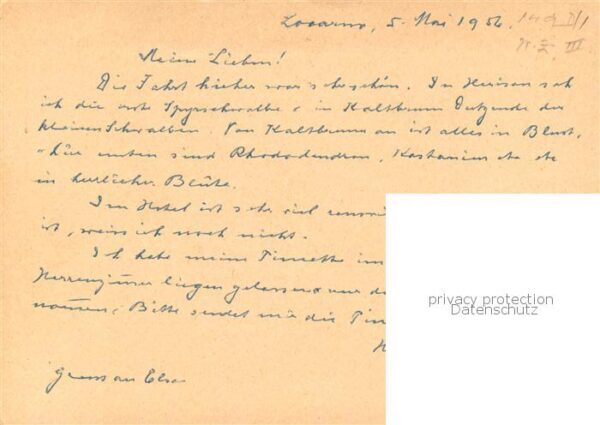 Locarno, 5. Mai 1956
Meine Lieben!
Die Fahrt hieher war sehr schön. In Herisau sah
ich die erste Spyrschwalbe & in Kaltbrunn Dutzende der
kleinen Schwalben. Von Kaltbrunn an ist alles in Blust,
& hier unten sind Rhododendron, Kastanien etc etc
in herrlicher Blüte.
Im Hotel ist sehr viel
ist, weiss ich noch nicht.
Ich habe meine im
liegen gelassen
Bitte sendet mir die
Gruss an Elsa
privacy protection
Datenschutz